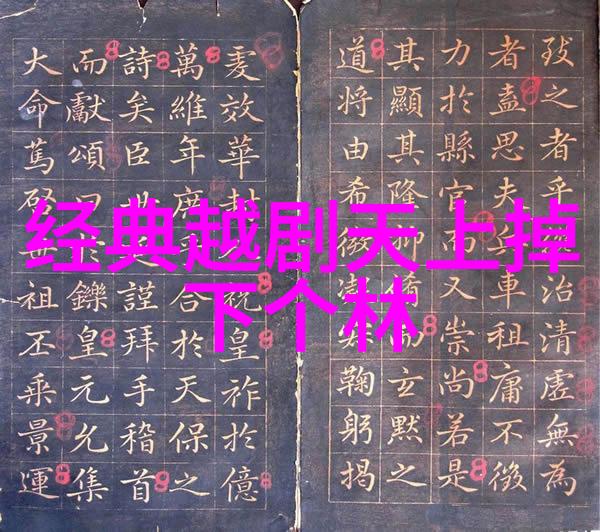 经典越剧天上掉
下个林
之者乎治清虛無為
者盍思夫兵車租庸不徵
力於縣官而又崇尚若是
其顯其隆抑玄默之
道將由希微鞠躬揭
效華封祝皇祚於億
萬維年合於天保之
詩矣臣世謹拜手稽首
而獻頌曰於鑠皇元允集
大命篤啓祖丕乘景運